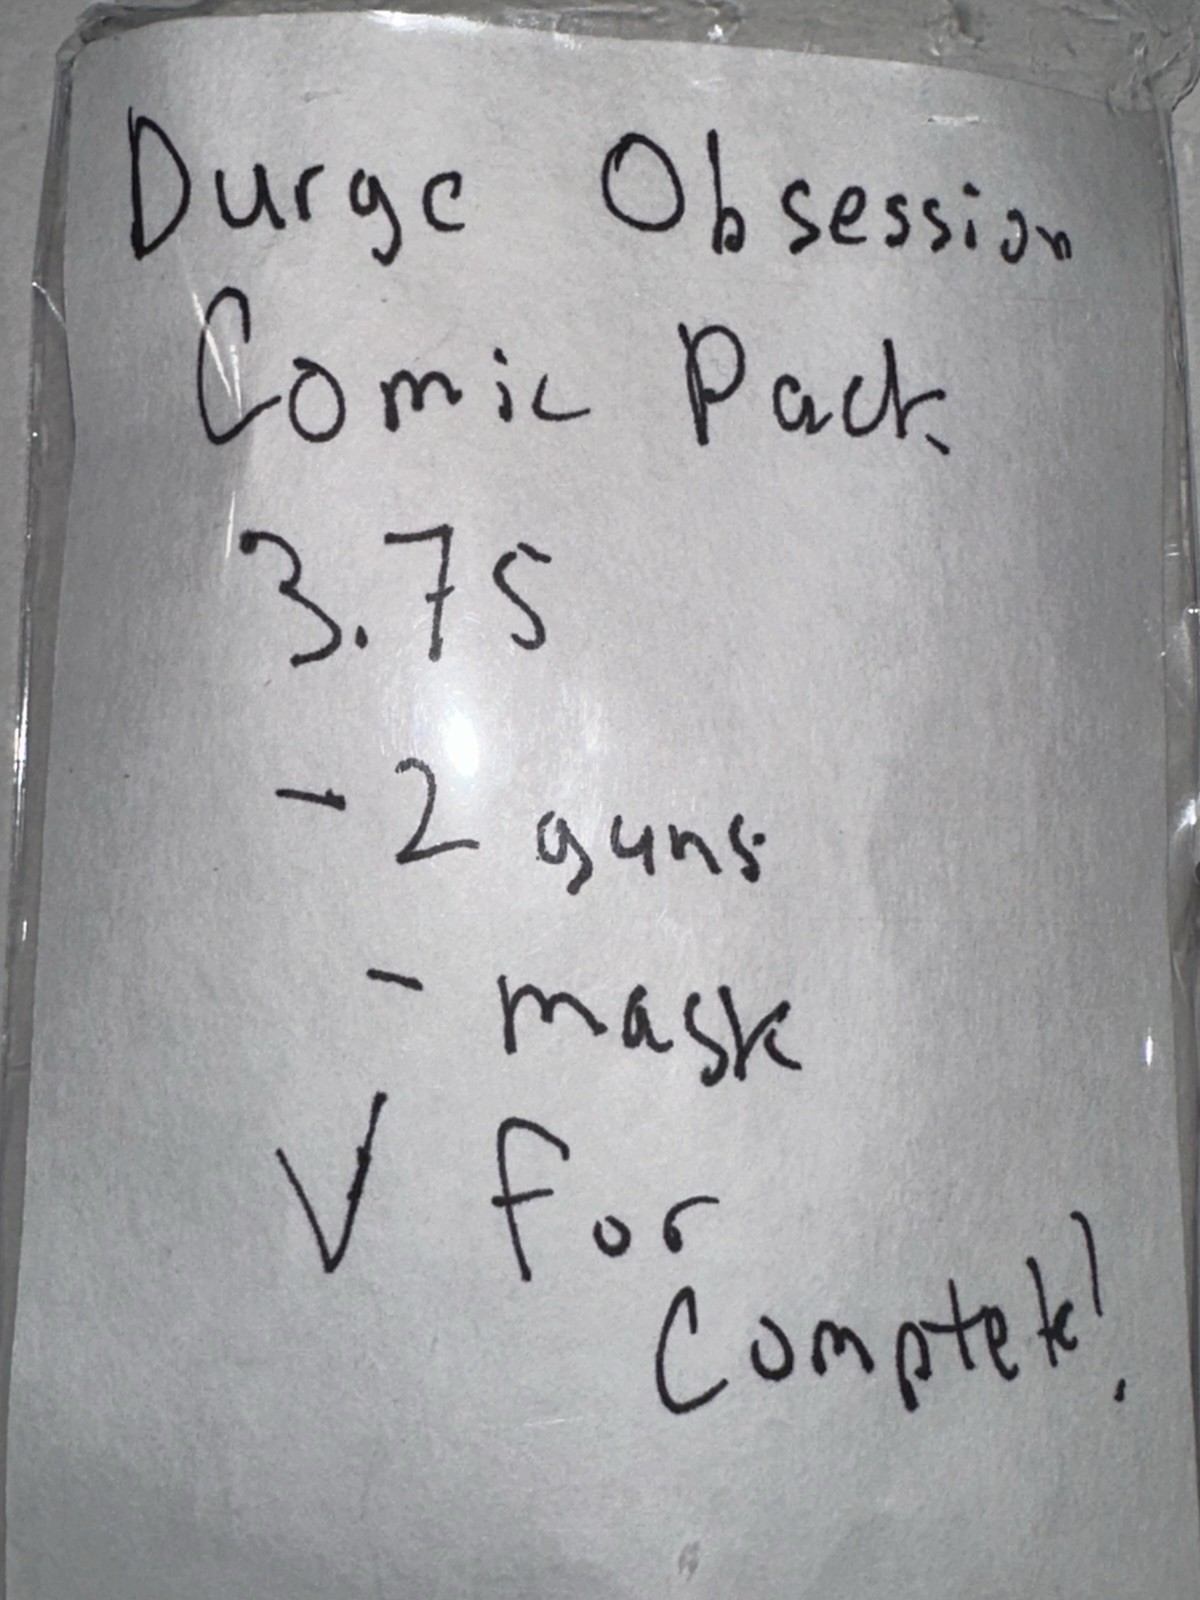 Durge Obsession
Comic Pack
3.75
- 2 guns
- mask
V for
Complete!